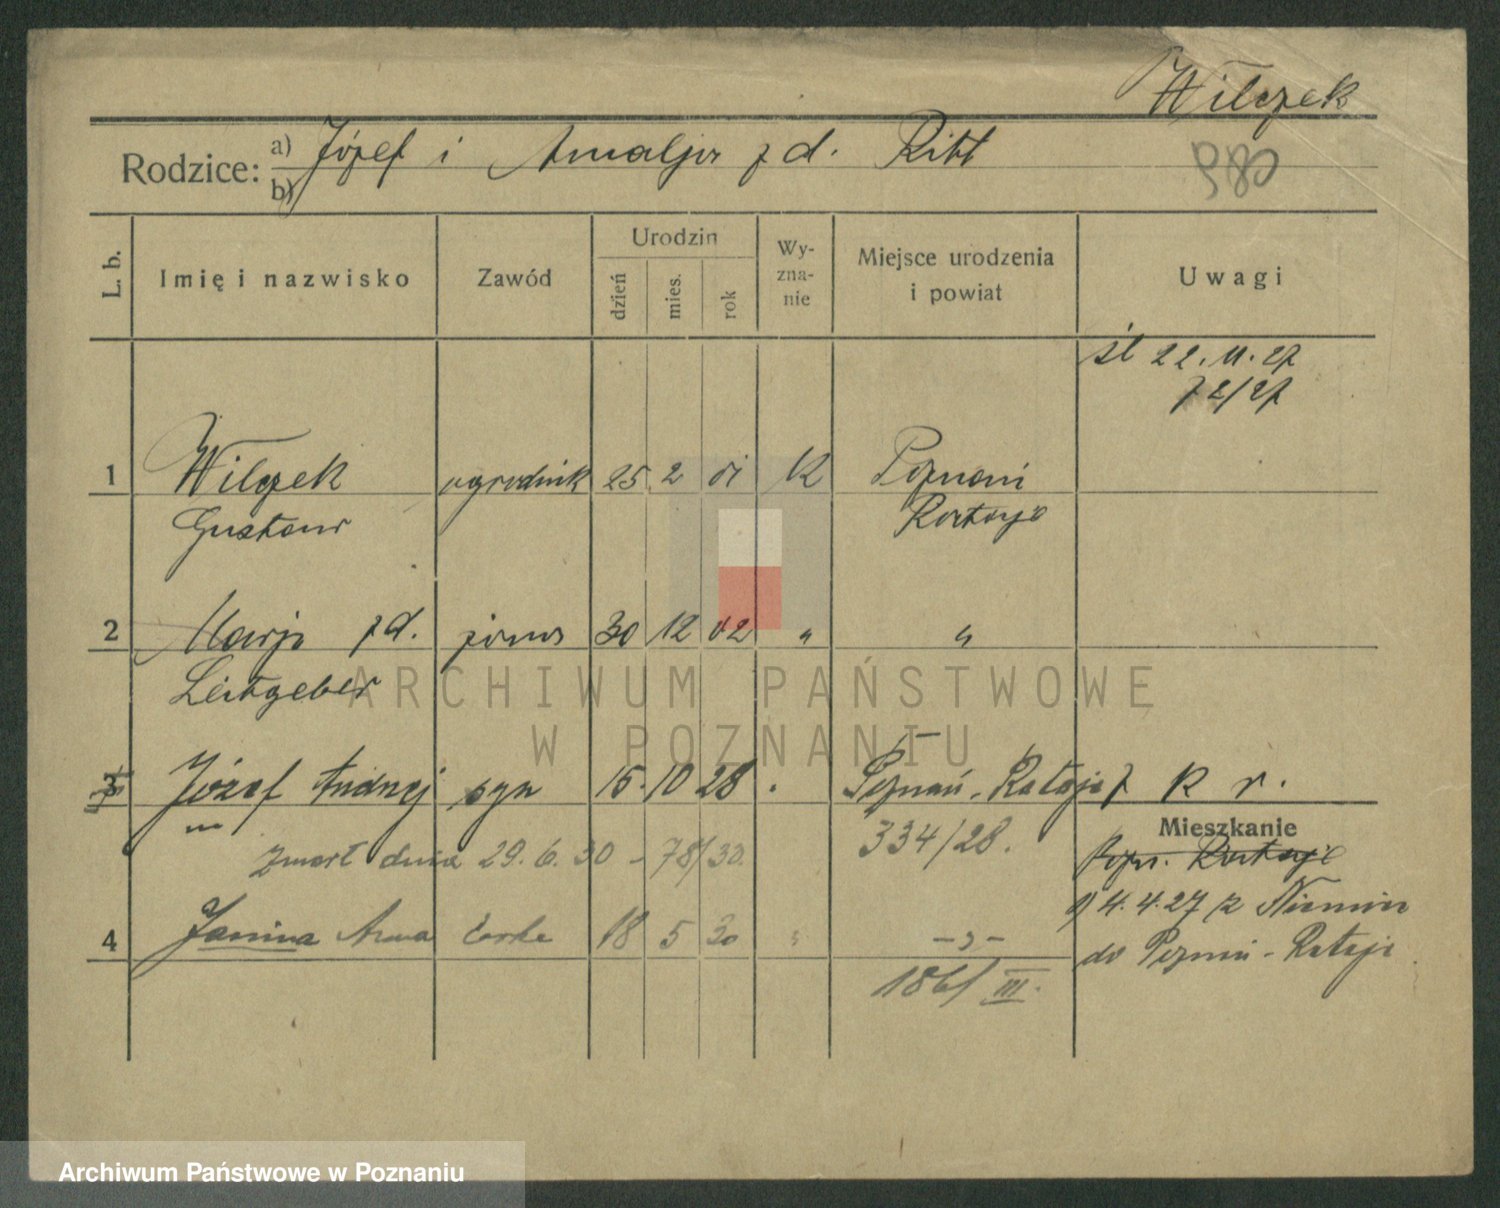 Wilczek
Rodzice: a) Józef i Amalja z d. Ritt
b)
L. b. Imię i nazwisko Zawód Urodzin dzień mies. rok Wy-zna-nie Miejsce urodzenia i powiat Uwagi
śl 22.11.27
72/27
1 Wilczek ogrodnik 25 2 01 K Poznań
Gustaw Rataje
2 Marja z d. żona 30 12 02 " "
Leitgeber
ARCHIWUM PAŃSTWOWE
W POZNANIU
3 Józef Andrzej syn 15. 10 28 . Poznań - Rataje z k r.
Mieszkanie
zmarł dnia 29. 6. 30 - 78/30. 334/28.
Rataje
4.4.27 z Niemiec
4 Janina Anna córka 18 5 30 " -"-
do Poznań - Rataje
186/III.
Archiwum Państwowe w Poznaniu